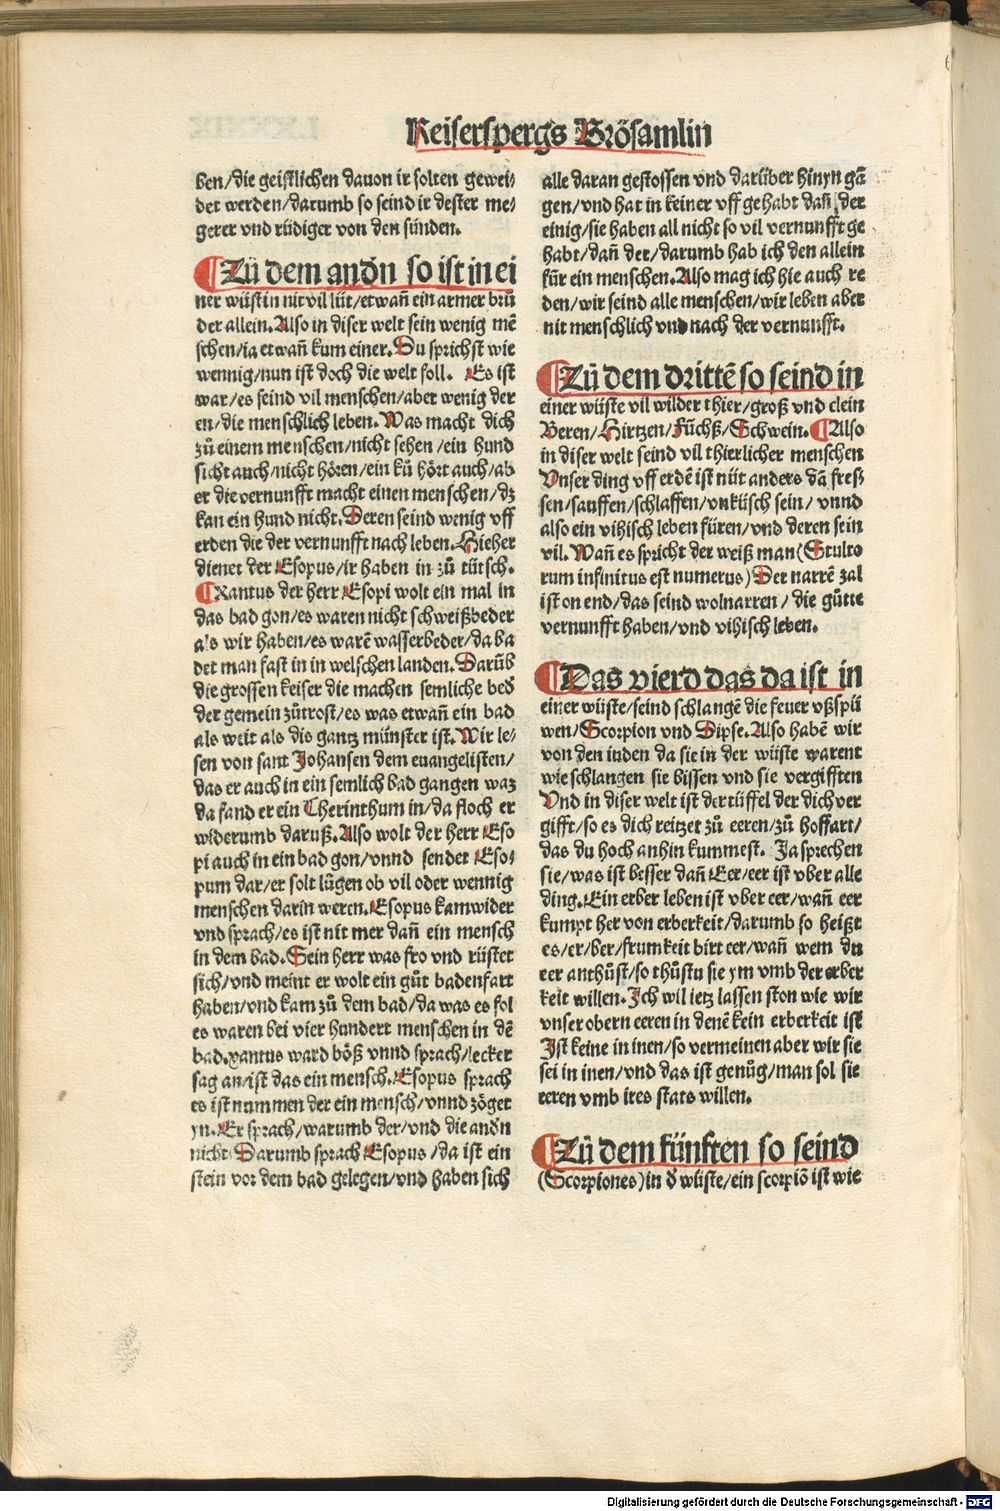 Keiserspergs Brösamlin
ben/die geistlichen dauon ir solten gewei⸗
det werden/darumb so seind ir dester me⸗
gerer vnd rüdiger von den sünden.
¶Zů dem andn̄ so ist in ei
ner wüst in nit vil lüt/etwañ ein armer brů
der allein. Also in diser welt sein wenig mē
schen/ia etwañ kum einer. Du sprichst wie
wennig/nun ist doch die welt foll. Es ist
war/es seind vil menschen/aber wenig der
en/die menschlich leben. Was macht dich
zů einem menschen/nicht sehen/ein hund
sicht auch/nicht hören/ein ků hört auch/ab
er die vernunfft macht einen menschen/dz
kan ein hund nicht. Deren seind wenig vff
erden die der vernunfft nach leben. Hieher
dienet der Esopus/ir haben in zů tütsch.
¶Xantus der herr Esopi wolt ein mal in
das bad gon/es waren nicht schweißbeder
als wir haben/es warē wasserbeder/da ba
det man fast in in welschen landen. Darūb
die grossen keiser die machen semliche bed̄
der gemein zůtrost/es was etwañ ein bad
als weit als dis gantz münster ist. Wir le⸗
sen von sant Johansen dem euangelisten/
das er auch in ein semlich bad gangen waz
da fand er ein Cherinthum in/da floch er
widerumb daruß. Also wolt der herr Eso
pi auch in ein bad gon/vnnd sendet Eso⸗
pum dar/er solt lůgen ob vil oder wennig
menschen darin weren. Esopus kam wider
vnd sprach/es ist nit mer dañ ein mensch
in dem bad. Sein herr was fro vnd rüstet
sich/vnd meint er wolt ein gůt badenfart
haben/vnd kam zů dem bad/da was es fol
es waren bei vier hundert menschen in dē
bad. xantus ward böß vnnd sprach/lecker
sag an/ist das ein mensch. Esopus sprach
es ist nummen der ein mensch/vnnd zöget
yn. Er sprach/warumb der/vnd die andn̄
nicht. Darumb sprach Esopus/da ist ein
stein vor dem bad gelegen/vnd haben sich
alle daran gestossen vnd darüber hinyn gā
gen/vnd hat in keiner vff gehabt dañ der
einig/sie haben all nicht so vil vernunfft ge
habt/dañ der/darumb hab ich den allein
für ein menschen. Also mag ich hie auch re
den/wir seind alle menschen/wir leben aber
nit menschlich vnd nach der vernunfft.
¶Zů dem drittē so seind in
einer wüste vil wilder thier/groß vnd clein
Beren/Hirtzen/Füchß/Schwein. ¶Also
in diser welt seind vil thierlicher menschen
Vnser ding vff erdē ist nüt anders dā fres⸗
sen/sauffen/schlaffen/vnküsch sein/vnnd
also ein vihisch leben füren/vnd deren sein
vil. Wañ es spricht der weiß man (Stulto
rum infinitus est numerus) Der narrē zal
ist on end/das seind wolnarren/die gůtte
vernunfft haben/vnd vihisch leben.
¶Das vierd das da ist in
einer wüste/seind schlangē die feuer vßspü
wen/Scorpion vnd Dipse. Also habē wir
von den iuden da sie in der wüste warent
wie schlangen sie bissen vnd sie vergifften
Vnd in diser welt ist der tüffel der dich ver
gifft/so es dich reitzet zů eeren/zů hoffart/
das du hoch anhin kummest. Ja sprechen
sie/was ist besser dañ Eer/eer ist vber alle
ding. Ein erber leben ist vber eer/wañ eer
kumpt her von erberkeit/darumb so heißt
es/er/ber/frumkeit birt eer/wañ wem du
eer anthůst/so thůstu sie ym vmb der erber
keit willen. Ich wil ietz lassen ston wie wir
vnser obern eeren in denē kein erberkeit ist
Ist keine in inen/so vermeinen aber wir sie
sei in inen/vnd das ist genůg/man sol sie
eeren vmb ires stats willen.
¶Zů dem fünften so seind
(Scorpiones) in d̄ wüste/ein scorpiō ist wie
Digitalisierung gefördert durch die Deutsche Forschungsgemeinschaft - DFG